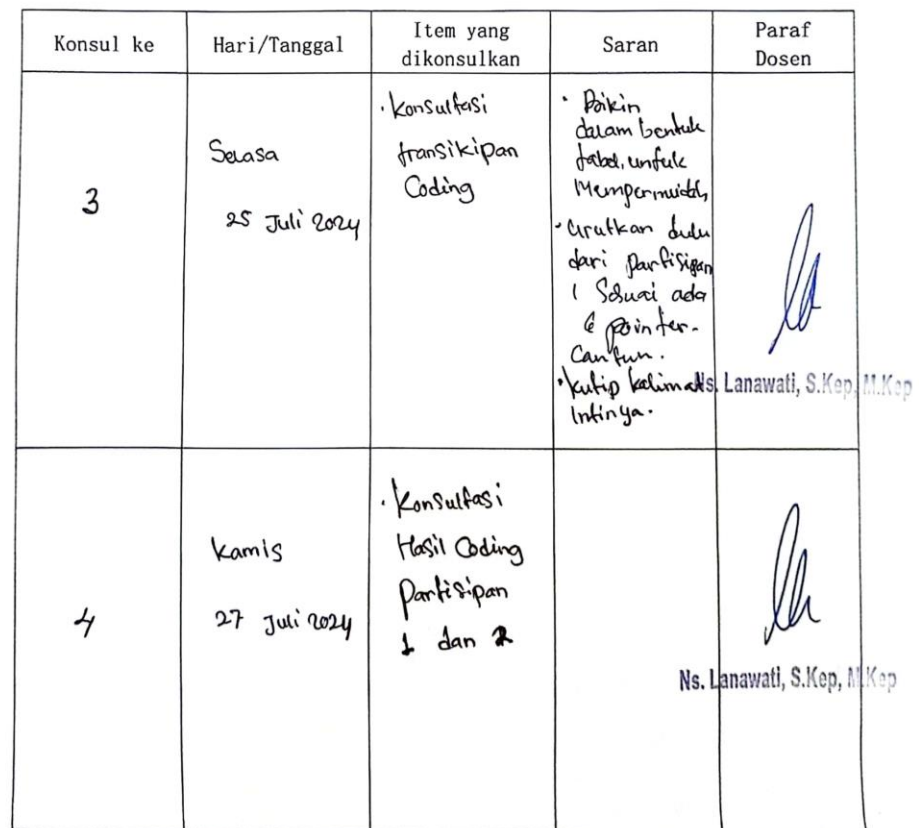 Konsul ke
Hari/Tanggal
Item yang
dikonsulkan
Saran
Paraf
Dosen
3
Selasa
25 Juli 2024
· Konsultasi
transikipan
Coding
· Bikin
dalam bentuk
tabel, untuk
Mempermudah
· Urutkan dulu
dari partisipan
1 Sesuai ada
6 pointer-
Cantun.
· Kutip kalimat
Intinya.
Ns. Lanawati, S.Kep, M.Kep
4
Kamis
27 Juli 2024
· Konsultasi
Hasil Coding
Partisipan
1 dan 2
Ns. Lanawati, S.Kep, M.Kep